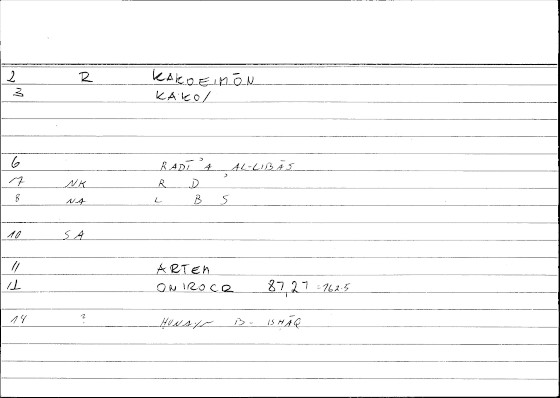 2 R KAKOEIMŌN
3 KAKO/
6 RADĪ'A AL-LIBĀS
7 NK R D '
8 NA L B S
10 SA
11 ARTEM
12 ONIROCR 87,27 = 162.5
14 ? HUNAYN B. ISHĀQ